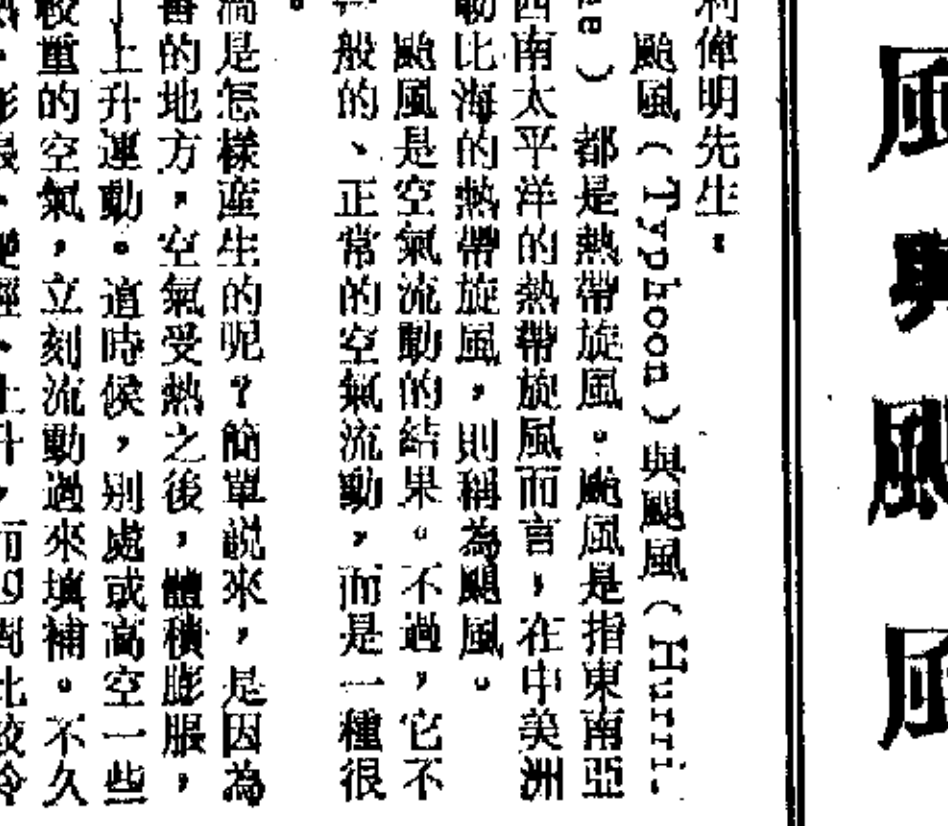 風與颶風
利偉明先生。
颱風(Typhoon)與颶風(Hurri-
ne)都是熱帶旋風。颱風是指東南亞
西南太平洋的熱帶旋風而言,在中美洲
勒比海的熱帶旋風,則稱為颶風。
颱風是空氣流動的結果。不過,它不
般的、正常的空氣流動,而是一種很
。
渦是怎樣產生的呢?簡單説來,是因為
的地方,空氣受熱之後,體積膨服,
上升運動。這時候,別處或高空一些
較重的空氣,立刻流動過來填補。不久
、上升,而四周比較冷